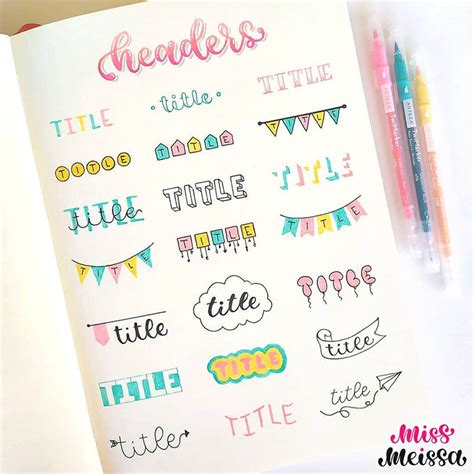 headers
TITLE
title
TITLE
TITLE
TITLE
TITLE
title
TITLE
TITLE
TITLE
TITLE
TITLE
title
title
TITLE
TITLE
TITLE
title
title
TITLE
title
ARTEZA TwiMarker
ARTEZA TwiMarker
Miss
Meissa